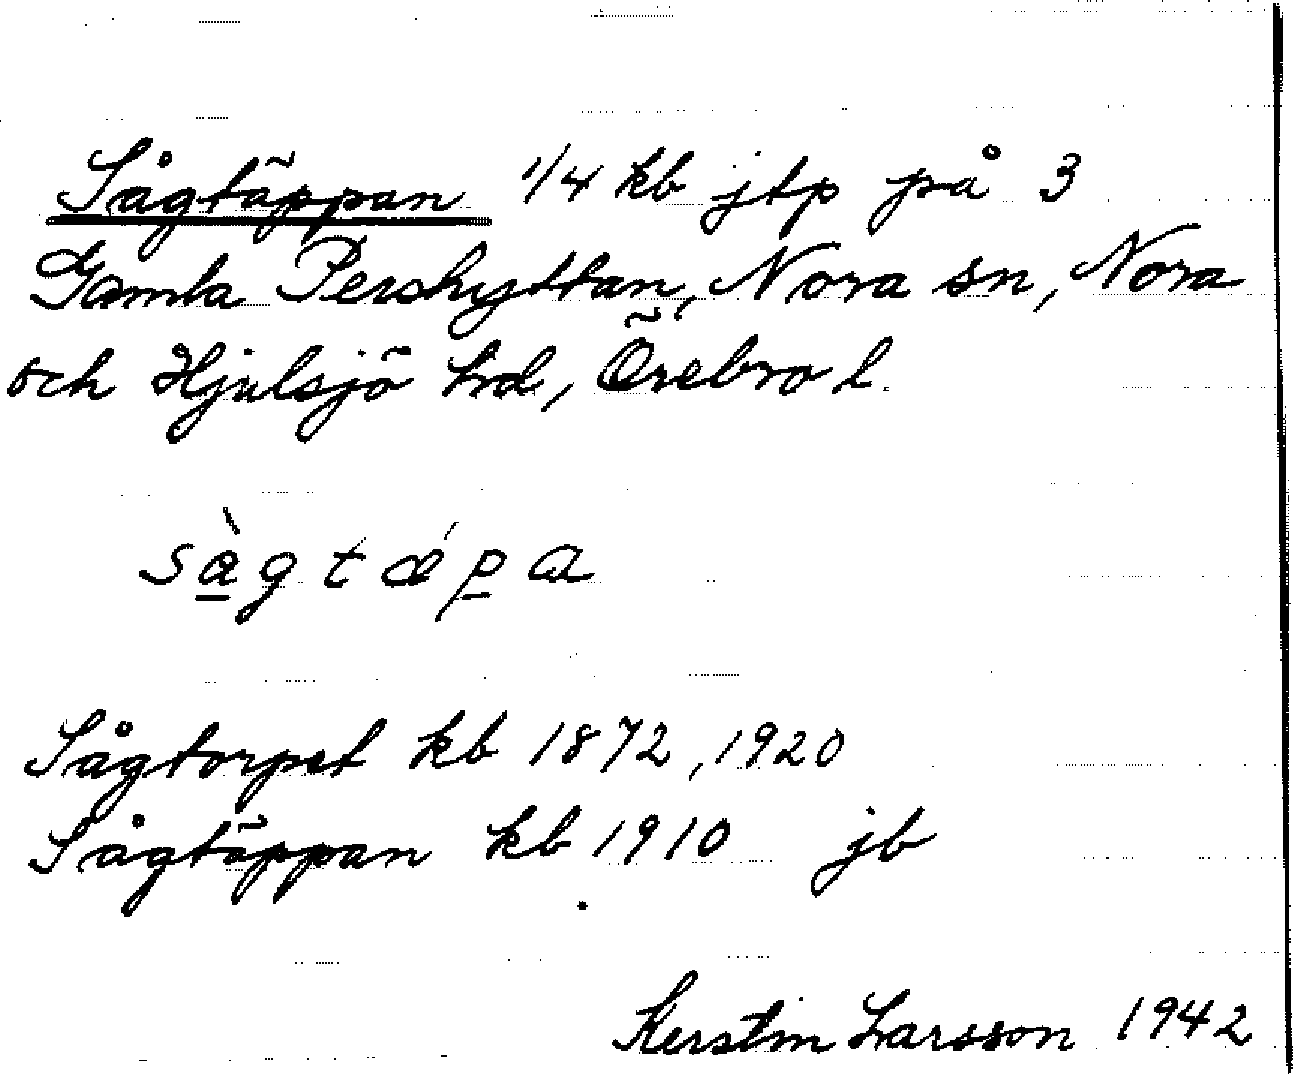 Sågtäppan 1/4 kb jtp på 3
Gamla Pershyttan, Nora sn, Nora
och Hjulsjö hd, Örebro l.
sà̱gtǽp̱a
Sågtorpet kb 1872, 1920
Sågtäppan kb 1910 jb
Kerstin Larsson 1942